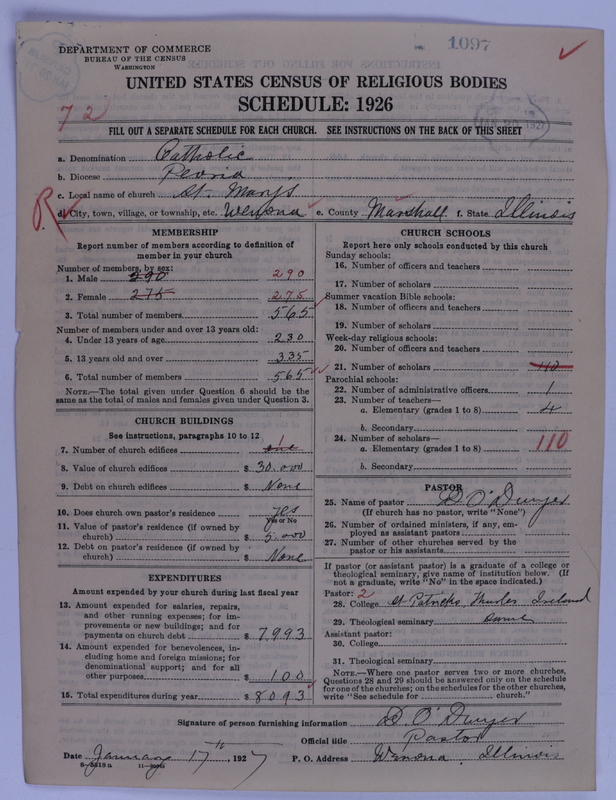 DEPARTMENT OF COMMERCE
BUREAU OF THE CENSUS
WASHINGTON
1097
UNITED STATES CENSUS OF RELIGIOUS BODIES
SCHEDULE: 1926
72
FILL OUT A SEPARATE SCHEDULE FOR EACH CHURCH. SEE INSTRUCTIONS ON THE BACK OF THIS SHEET
a. Denomination Catholic
b. Diocese Peoria
c. Local name of church St. Marys
d. City, town, village, or township, etc. Wenona e. County Marshall f. State Illinois
R
MEMBERSHIP
Report number of members according to definition of
member in your church
Number of members, by sex:
1. Male 290 290
2. Female 275 275
3. Total number of members 565
Number of members under and over 13 years old:
4. Under 13 years of age 230
5. 13 years old and over 335
6. Total number of members 565
NOTE.—The total given under Question 6 should be the
same as the total of males and females given under Question 3.
CHURCH BUILDINGS
See instructions, paragraphs 10 to 12
7. Number of church edifices one 1
8. Value of church edifices $ 30.000
9. Debt on church edifices $ None
10. Does church own pastor's residence yes
Yes or No
11. Value of pastor's residence (if owned by
church) $ 5.000
12. Debt on pastor's residence (if owned by
church) $ None
EXPENDITURES
Amount expended by your church during last fiscal year
13. Amount expended for salaries, repairs,
and other running expenses; for im-
provements or new buildings; and for
payments on church debt $ 7993
14. Amount expended for benevolences, in-
cluding home and foreign missions; for
denominational support; and for all
other purposes $ 100
15. Total expenditures during year $ 8093
CHURCH SCHOOLS
Report here only schools conducted by this church
Sunday schools:
16. Number of officers and teachers
17. Number of scholars
Summer vacation Bible schools:
18. Number of officers and teachers
19. Number of scholars
Week-day religious schools:
20. Number of officers and teachers
21. Number of scholars 110
Parochial schools:
22. Number of administrative officers 1
23. Number of teachers—
a. Elementary (grades 1 to 8) 4
b. Secondary
24. Number of scholars—
a. Elementary (grades 1 to 8) 110
b. Secondary
PASTOR
25. Name of pastor D. O'Dwyer
(If church has no pastor, write "None")
26. Number of ordained ministers, if any, em-
ployed as assistant pastors
27. Number of other churches served by the
pastor or his assistants
If pastor (or assistant pastor) is a graduate of a college or
theological seminary, give name of institution below. (If
not a graduate, write "No" in the space indicated.)
Pastor: 2
28. College St Patricks, Thurles Ireland
29. Theological seminary Same
Assistant pastor:
30. College
31. Theological seminary
NOTE.—Where one pastor serves two or more churches,
Questions 28 and 29 should be answered only on the schedule
for one of the churches; on the schedules for the other churches,
write "See schedule for church."
Signature of person furnishing information D. O'Dwyer
Official title Pastor
Date January 17th, 1927 P. O. Address Wenona, Illinois